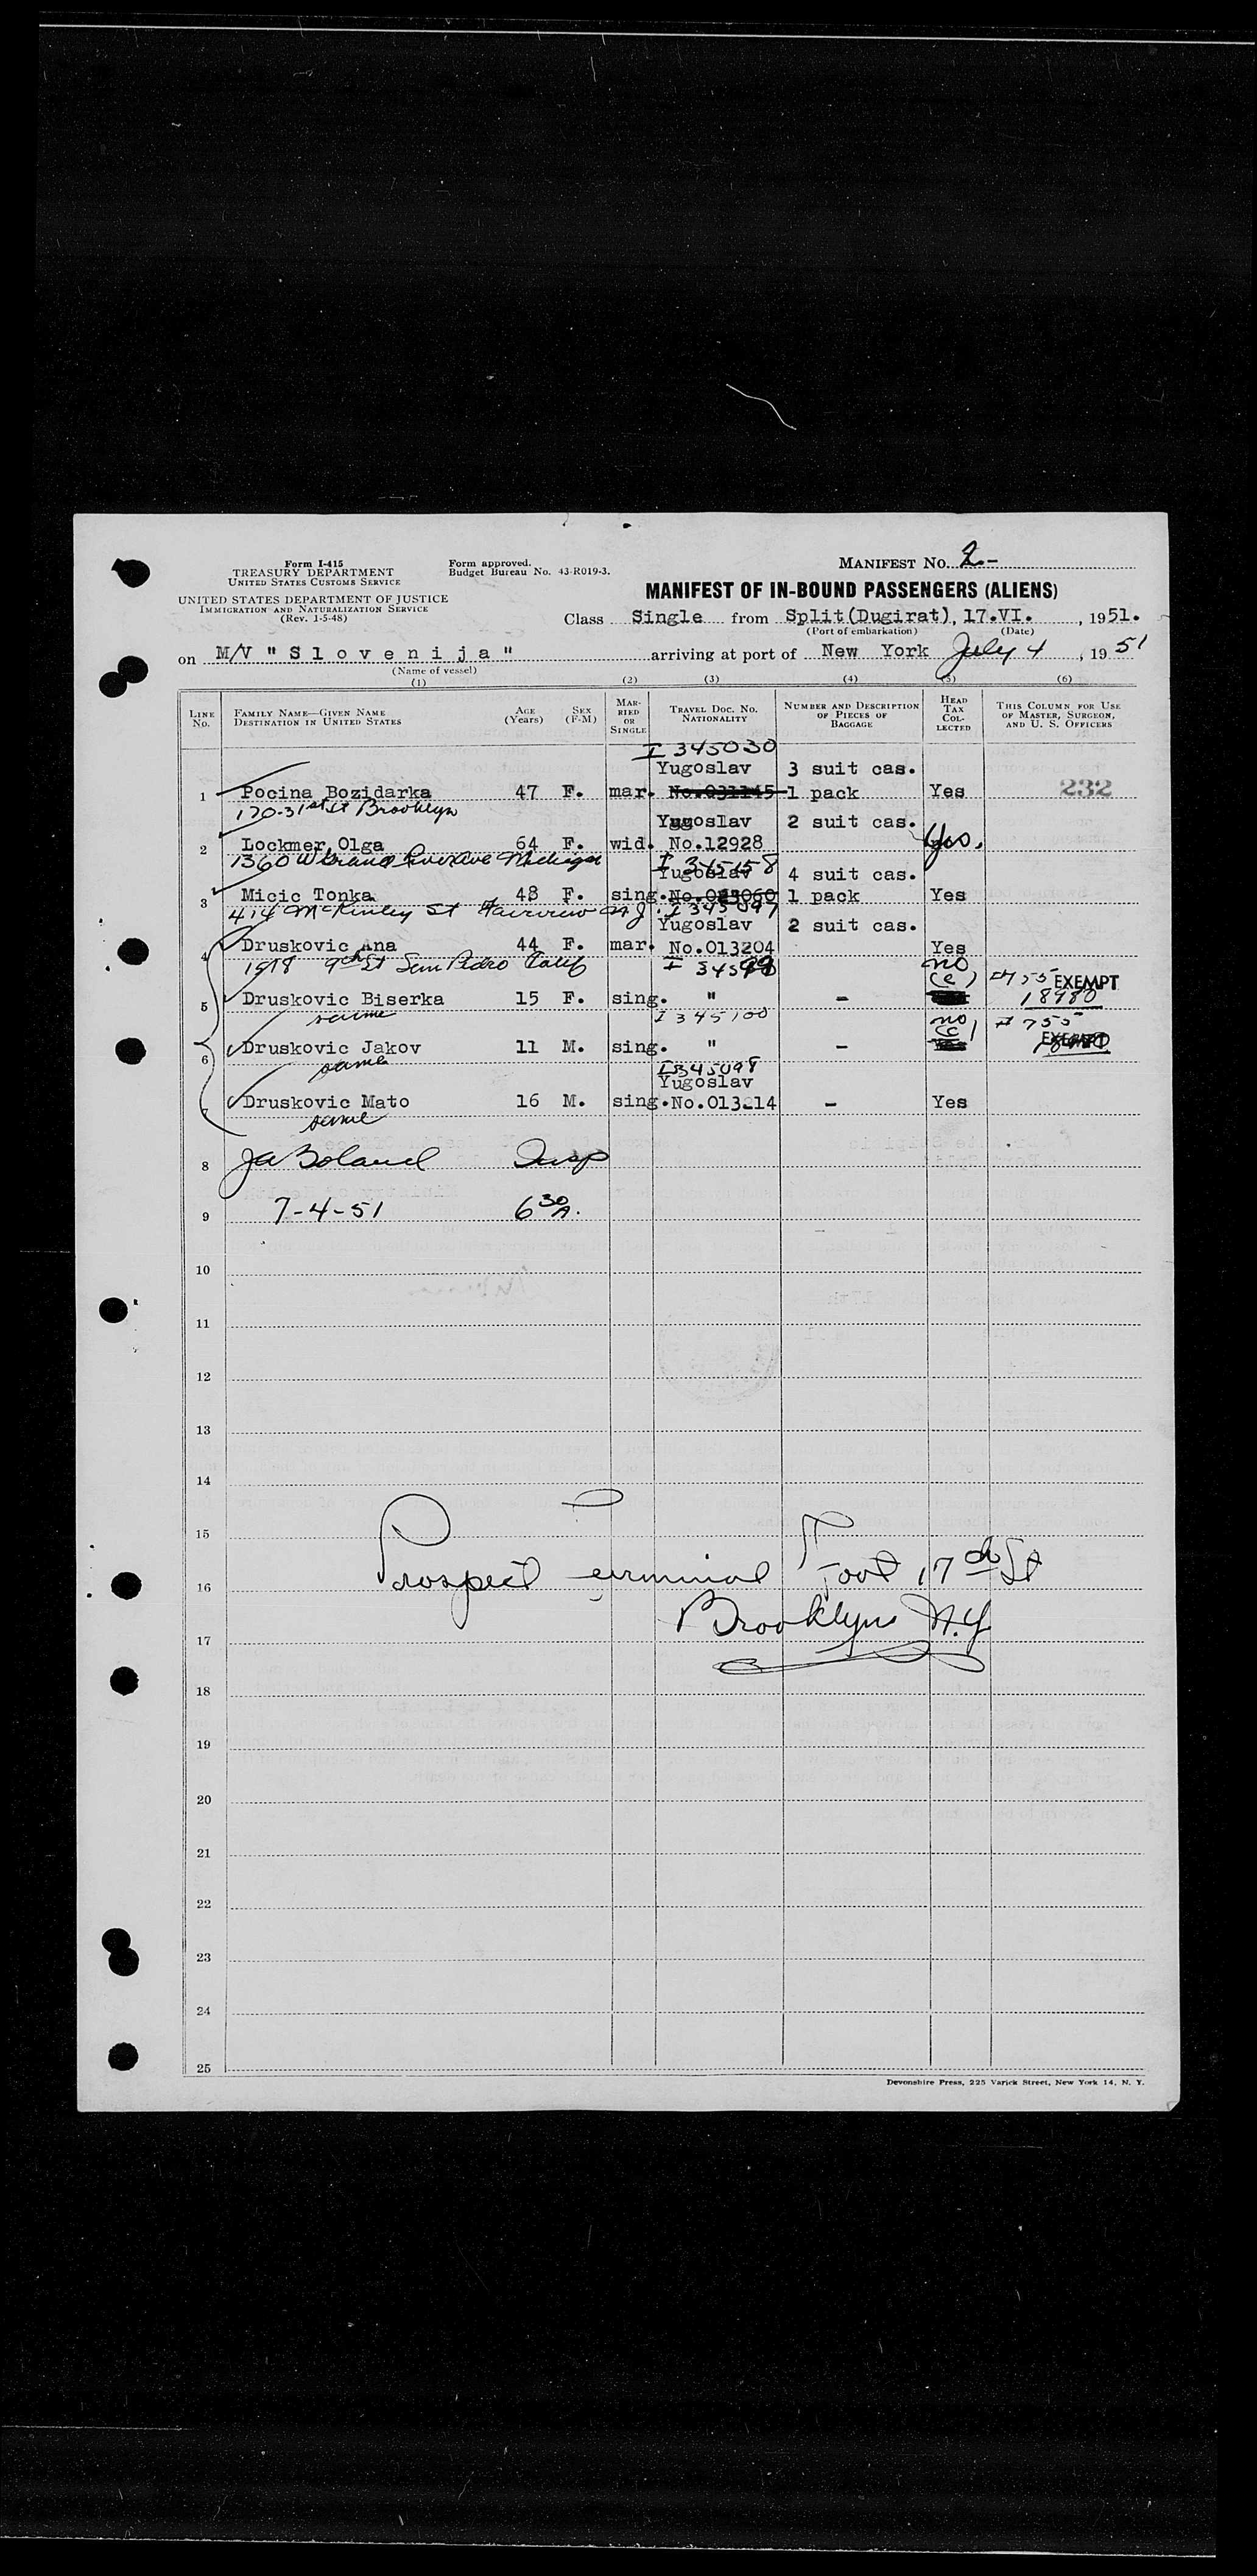 Form I-415
TREASURY DEPARTMENT
UNITED STATES CUSTOMS SERVICE
UNITED STATES DEPARTMENT OF JUSTICE
IMMIGRATION AND NATURALIZATION SERVICE
(Rev. 1-5-48)
Form approved.
Budget Bureau No. 43-R019-3.
MANIFEST NO. 2.-
MANIFEST OF IN-BOUND PASSENGERS (ALIENS)
Class Single from Split(Dugirat), 17.VI. , 1951.
(Port of embarkation) (Date)
on M/V "Slovenija" arriving at port of New York July 4 , 19 51
(Name of vessel)
(1) (2) (3) (4) (5) (6)
LINE NO. FAMILY NAME—GIVEN NAME DESTINATION IN UNITED STATES AGE (Years) SEX (F-M) MARRIED OR SINGLE TRAVEL DOC. NO. NATIONALITY NUMBER AND DESCRIPTION OF PIECES OF BAGGAGE HEAD TAX COLLECTED THIS COLUMN FOR USE OF MASTER, SURGEON, AND U. S. OFFICERS
I 345030
Yugoslav 3 suit cas.
1 Pocina Bozidarka 47 F. mar. No.031145 1 pack Yes 232
170-31st St Brooklyn
Yugoslav 2 suit cas.
2 Lockmer Olga 64 F. wid. No.12928 Yes.
1360 W Grand River Ave Michigan I 345158
Yugoslav 4 suit cas.
3 Micic Tonka 48 F. sing. 1 pack Yes
414 McKinley St Fairview N J. I 345097
Yugoslav 2 suit cas.
4 Druskovic Ana 44 F. mar. No.013204 Yes
9th St San Pedro Calif I
no
(c) EXEMPT
5 Druskovic Biserka 15 F. sing. " - 18980
same I 345100
no
(c) # 755
EXEMPT
6 Druskovic Jakov 11 M. sing. " -
same I345098
Yugoslav
7 Druskovic Mato 16 M. sing. No.013214 - Yes
same
8 JA Boland Insp
9 7-4-51 6 30 A.
10
11
12
13
14
15
16 Prospect Terminal Foot 17th St
17 Brooklyn N.Y
18
19
20
21
22
23
24
25
Devonshire Press, 225 Varick Street, New York 14, N. Y.